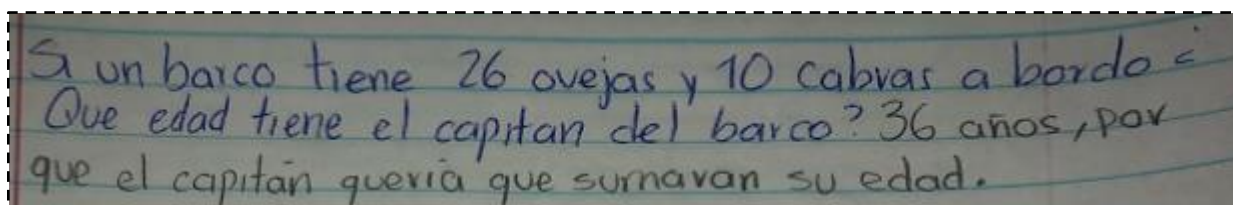 Si un barco tiene 26 ovejas y 10 cabras a bordo ¿
Que edad tiene el capitan del barco? 36 años, por
que el capitán quería que sumaran su edad.